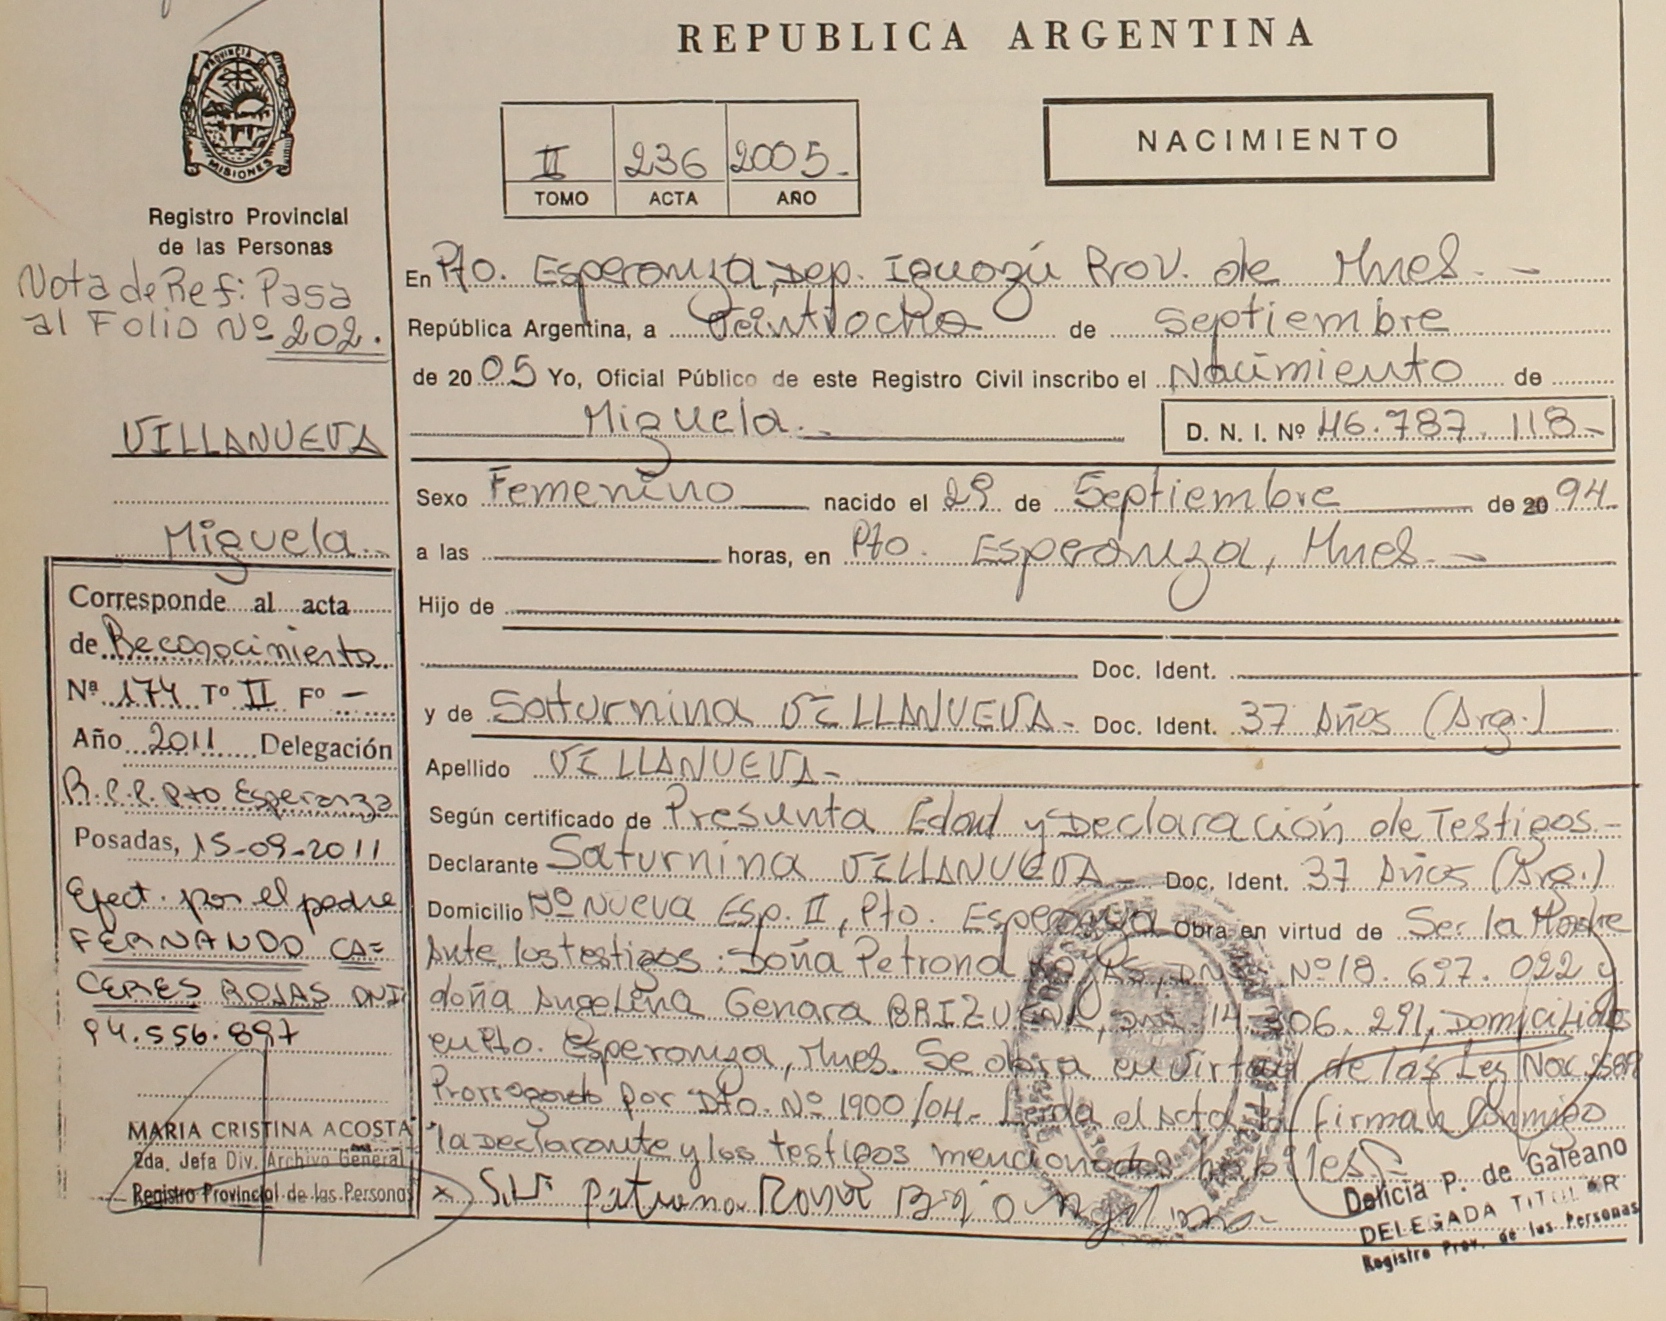 REPUBLICA ARGENTINA
PROVINCIA DE
MISIONES
Registro Provincial
de las Personas
Nota de Ref: Pasa
al Folio Nº 202.
VILLANUEVA
Miguela.
Corresponde al acta
de Reconocimiento
Nº 174 Tº II Fº -
Año 2011 Delegación
R.P.P. Pto Esperanza
Posadas, 15-09-2011
Efect. por el padre
FERNANDO CA=
CERES ROJAS DNI
94.556.897
MARIA CRISTINA ACOSTA
2da. Jefa Div. Archivo General
Registro Provincial de las Personas
II 236 2005.-
TOMO ACTA AÑO
NACIMIENTO
En Pto. Esperanza, Dep. Iguazú Prov. de Mnes.-
República Argentina, a Veintiocho de Septiembre
de 2005 Yo, Oficial Público de este Registro Civil inscribo el Nacimiento de
Miguela.- D. N. I. Nº 46.787.118-
Sexo Femenino nacido el 29 de Septiembre de 20 94.
a las horas, en Pto. Esperanza, Mnes.-
Hijo de
Doc. Ident.
y de Saturnina VILLANUEVA- Doc. Ident. 37 Años (Arg.)
Apellido VILLANUEVA-
Según certificado de Presunta Edad y Declaración de Testigos.-
Declarante Saturnina VILLANUEVA- Doc. Ident. 37 Años (Arg.)
Domicilio Nº Nueva Esp. II, Pto. Esperanza Obra en virtud de Ser la Madre
Ante los testigos: Doña Petrona DNI Nº 18.697.022 y
doña Angelina Genara BRIZUENA, DNI 14.206.291, Domiciliados
en Pto. Esperanza, Mnes. Se obra en virtud de las Ley Nac.
Prorrogado por Dto. Nº 1900/04- Leída el Acta la firman Conmigo
la Declarante y los testigos mencionados hábiles.-
x S.V. Petrona
Delicia P. de Galeano
DELEGADA TITULAR
Registro Prov. de las Personas